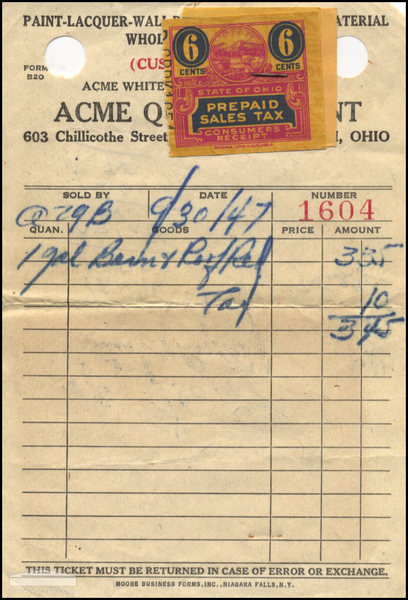 PAINT-LACQUER-WALL
MATERIAL
WHOL
FORM
B20
(CUS
ACME WHITE
ACME Q
NT
603 Chillicothe Street
, OHIO
6 CENTS
6 CENTS
STATE OF OHIO
PREPAID
SALES TAX
CONSUMERS
RECEIPT
SOLD BY DATE NUMBER
@79B 9/30/47 1604
QUAN. GOODS PRICE AMOUNT
1 gal Barn & Roof Red 335
Tax 10
345
THIS TICKET MUST BE RETURNED IN CASE OF ERROR OR EXCHANGE.
MOORE BUSINESS FORMS, INC., NIAGARA FALLS, N.Y.